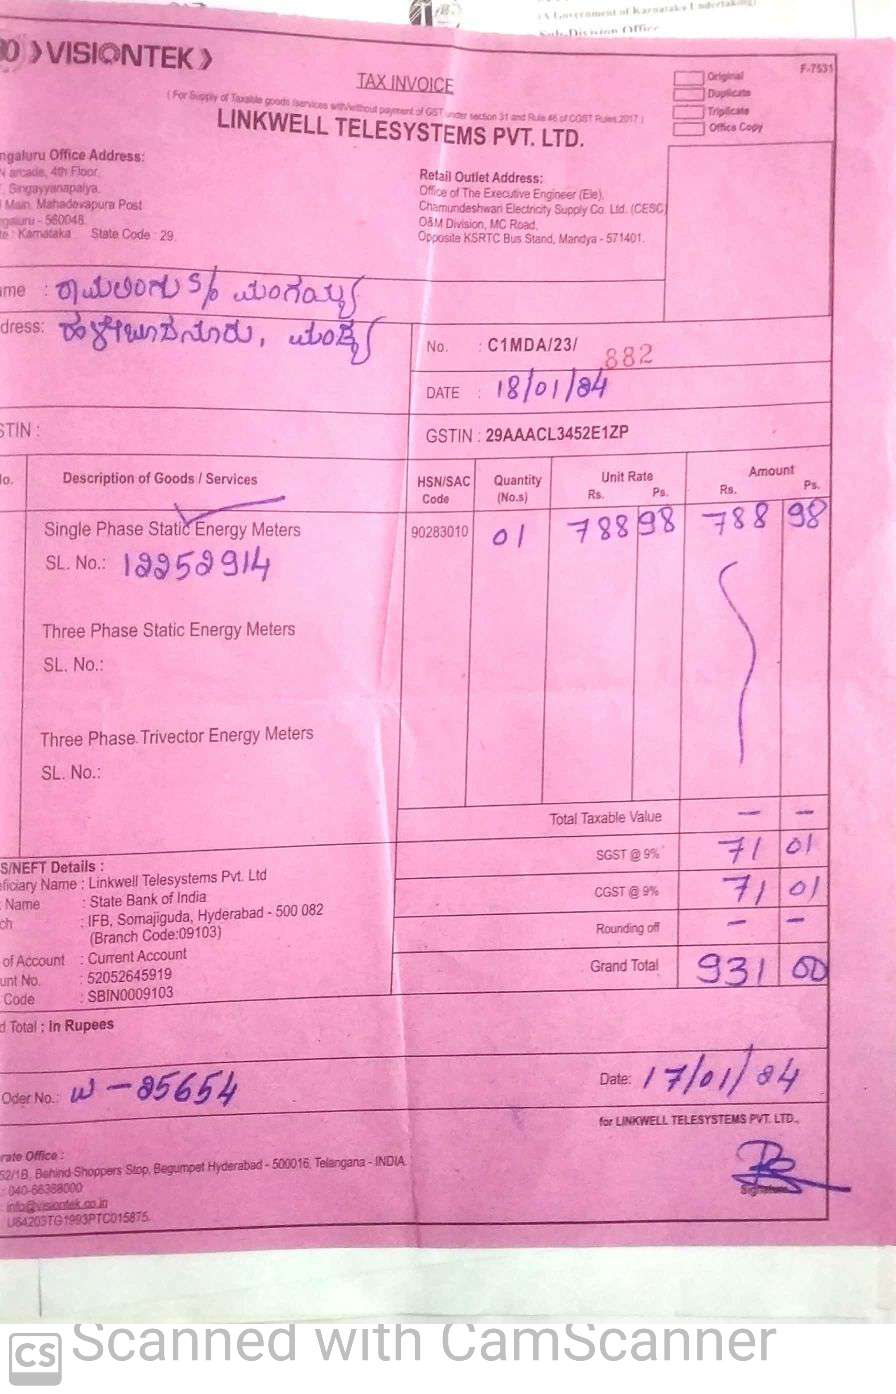 VISIONTEK
F-7531
TAX INVOICE
( For Supply of Taxable goods /services with/without payment of GST under section 31 and Rule 46 of CGST Rules 2017 )
LINKWELL TELESYSTEMS PVT. LTD.
Original
Duplicate
Triplicate
Office Copy
ngaluru Office Address:
N arcade, 4th Floor,
Singayyanapalya,
Main, Mahadevapura Post
galuru - 560048.
te : Karnataka State Code : 29
Retail Outlet Address:
Office of The Executive Engineer (Ele),
Chamundeshwari Electricity Supply Co. Ltd. (CESC)
O&M Division, MC Road,
Opposite KSRTC Bus Stand, Mandya - 571401.
ame : ರಾಮಲಿಂಗು S/o ಮಂಗಯ್ಯ
dress: ಮಂಡ್ಯ
No. : C1MDA/23/ 882
DATE : 18/01/24
STIN :
GSTIN : 29AAACL3452E1ZP
lo. Description of Goods / Services HSN/SAC Code Quantity (No.s) Unit Rate Rs. Ps. Amount Rs. Ps.
Single Phase Static Energy Meters 90283010 01 788 98 788 98
SL. No.: 12252914
Three Phase Static Energy Meters
SL. No.:
Three Phase Trivector Energy Meters
SL. No.:
Total Taxable Value — —
SGST @ 9% 71 01
CGST @ 9% 71 01
Rounding off — —
Grand Total 931 00
S/NEFT Details :
eficiary Name : Linkwell Telesystems Pvt. Ltd
Name : State Bank of India
ch : IFB, Somajiguda, Hyderabad - 500 082
(Branch Code:09103)
of Account : Current Account
unt No. : 52052645919
Code : SBIN0009103
d Total : In Rupees
Oder No.: W-25654
Date: 17/01/24
for LINKWELL TELESYSTEMS PVT. LTD.,
Signature
rate Office :
52/1B, Behind Shoppers Stop, Begumpet Hyderabad - 500016, Telangana - INDIA
: 040-66388000
info@visiontek.co.in
U64203TG1993PTC015875
CS Scanned with CamScanner